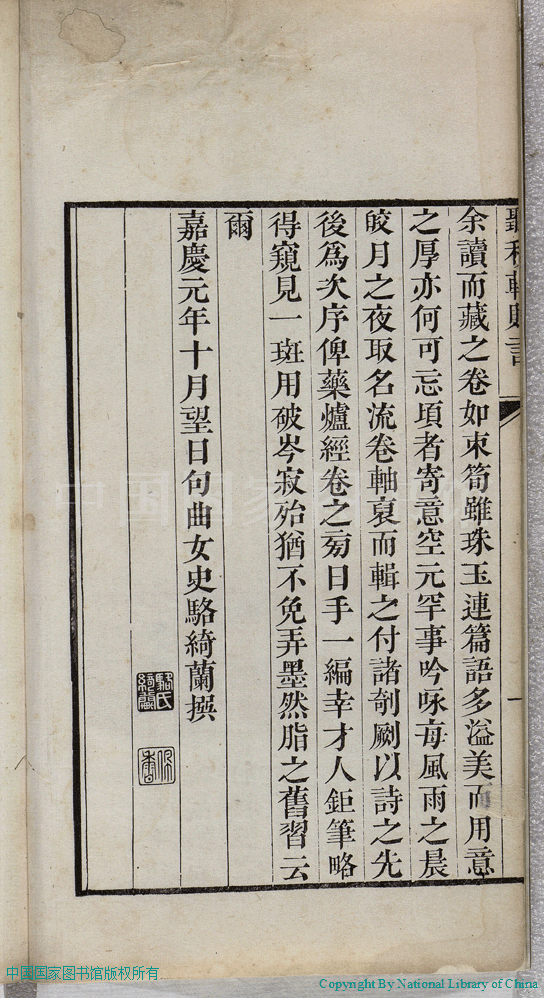 聽秋軒贈言
一
余讀而藏之卷如束筍雖珠玉連篇語多溢美而用意
之厚亦何可忘頃者寄意空元罕事吟咏每風雨之晨
皎月之夜取名流卷軸裒而輯之付諸剞劂以詩之先
後爲次序俾藥爐經卷之旁日手一編幸才人鉅筆略
得窺見一斑用破岑寂殆猶不免弄墨然脂之舊習云
爾
嘉慶元年十月望日句曲女史駱綺蘭撰
駱氏綺蘭
佩香
中国国家图书馆
中国国家图书馆版权所有
Copyright By National Library of China